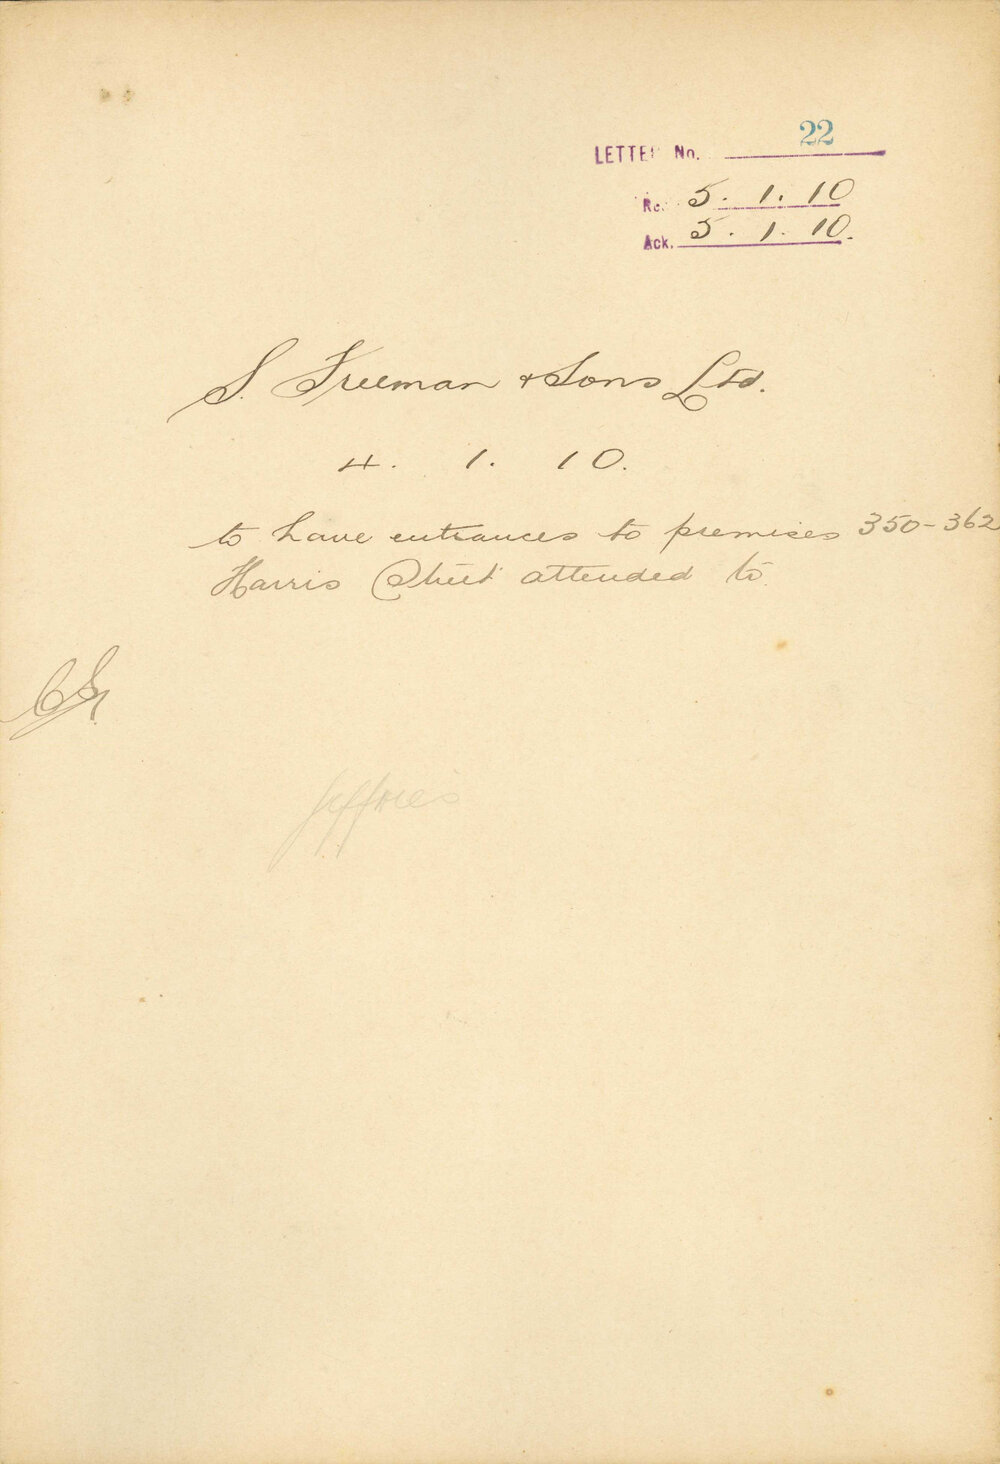 LETTER No. 22
Rec. 5.1.10
Ack. 5.1.10.
S. Freeman & Sons Ltd.
4.1.10.
to have entrances to premises 350-362
Harris Street attended to.
Jeffries